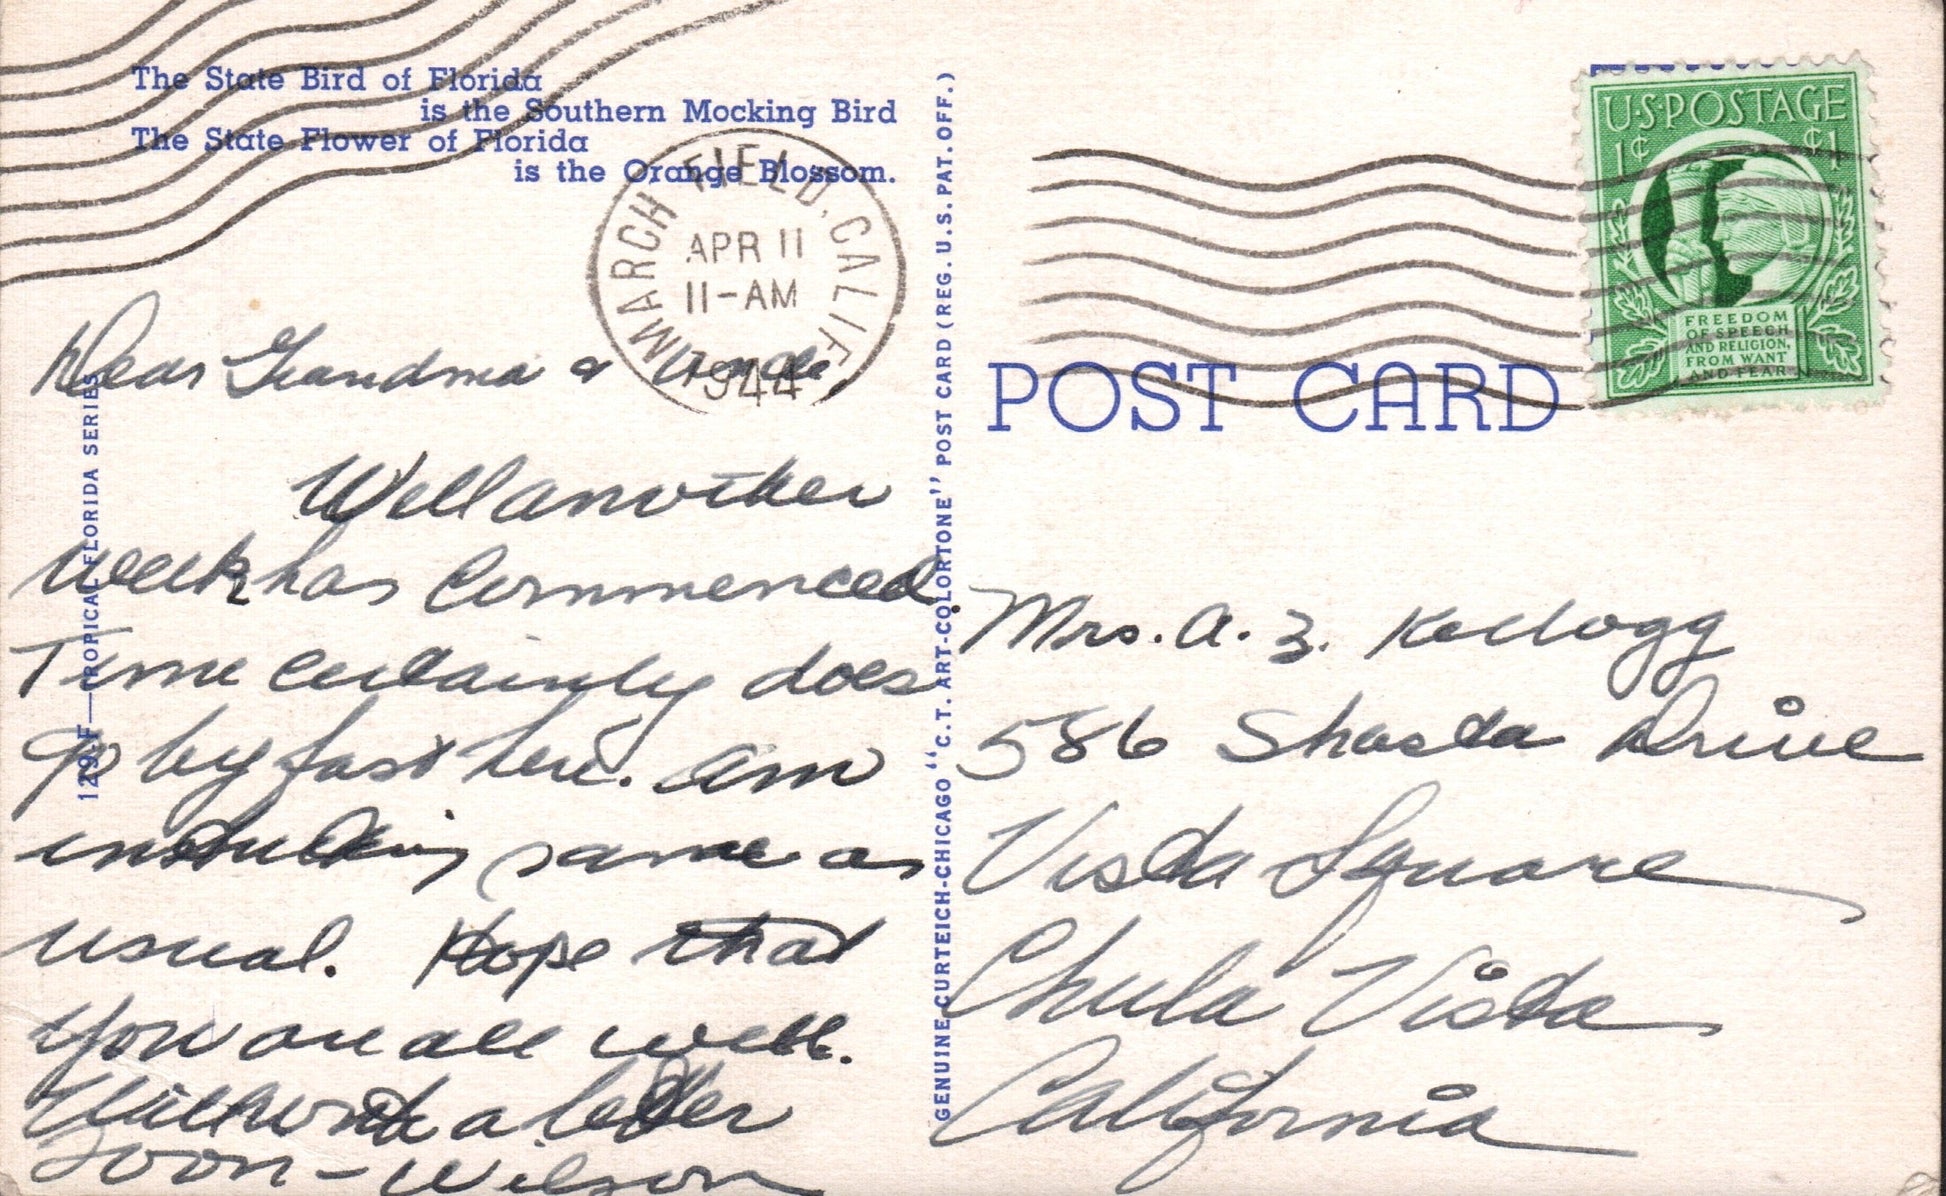 The State Bird of Florida
is the Southern Mocking Bird
The State Flower of Florida
is the Orange Blossom.
MARCH FIELD, CALIF.
APR 11
11-AM
1944
Dear Grandma &
Well another
week has commenced.
Time certainly does
go by fast here. Am
instructing same as
usual. Hope that
you are all well.
Will write a letter
soon - Wilson
129-F—TROPICAL FLORIDA SERIES
GENUINE CURTEICH-CHICAGO "C.T. ART-COLORTONE" POST CARD (REG. U.S. PAT. OFF.)
U.S. POSTAGE
1¢ ¢1
FREEDOM
OF SPEECH
AND RELIGION,
FROM WANT
AND FEAR
POST CARD
Mrs. A. Z. Kellogg
586 Shasta Drive
Vista Square
Chula Vista
California